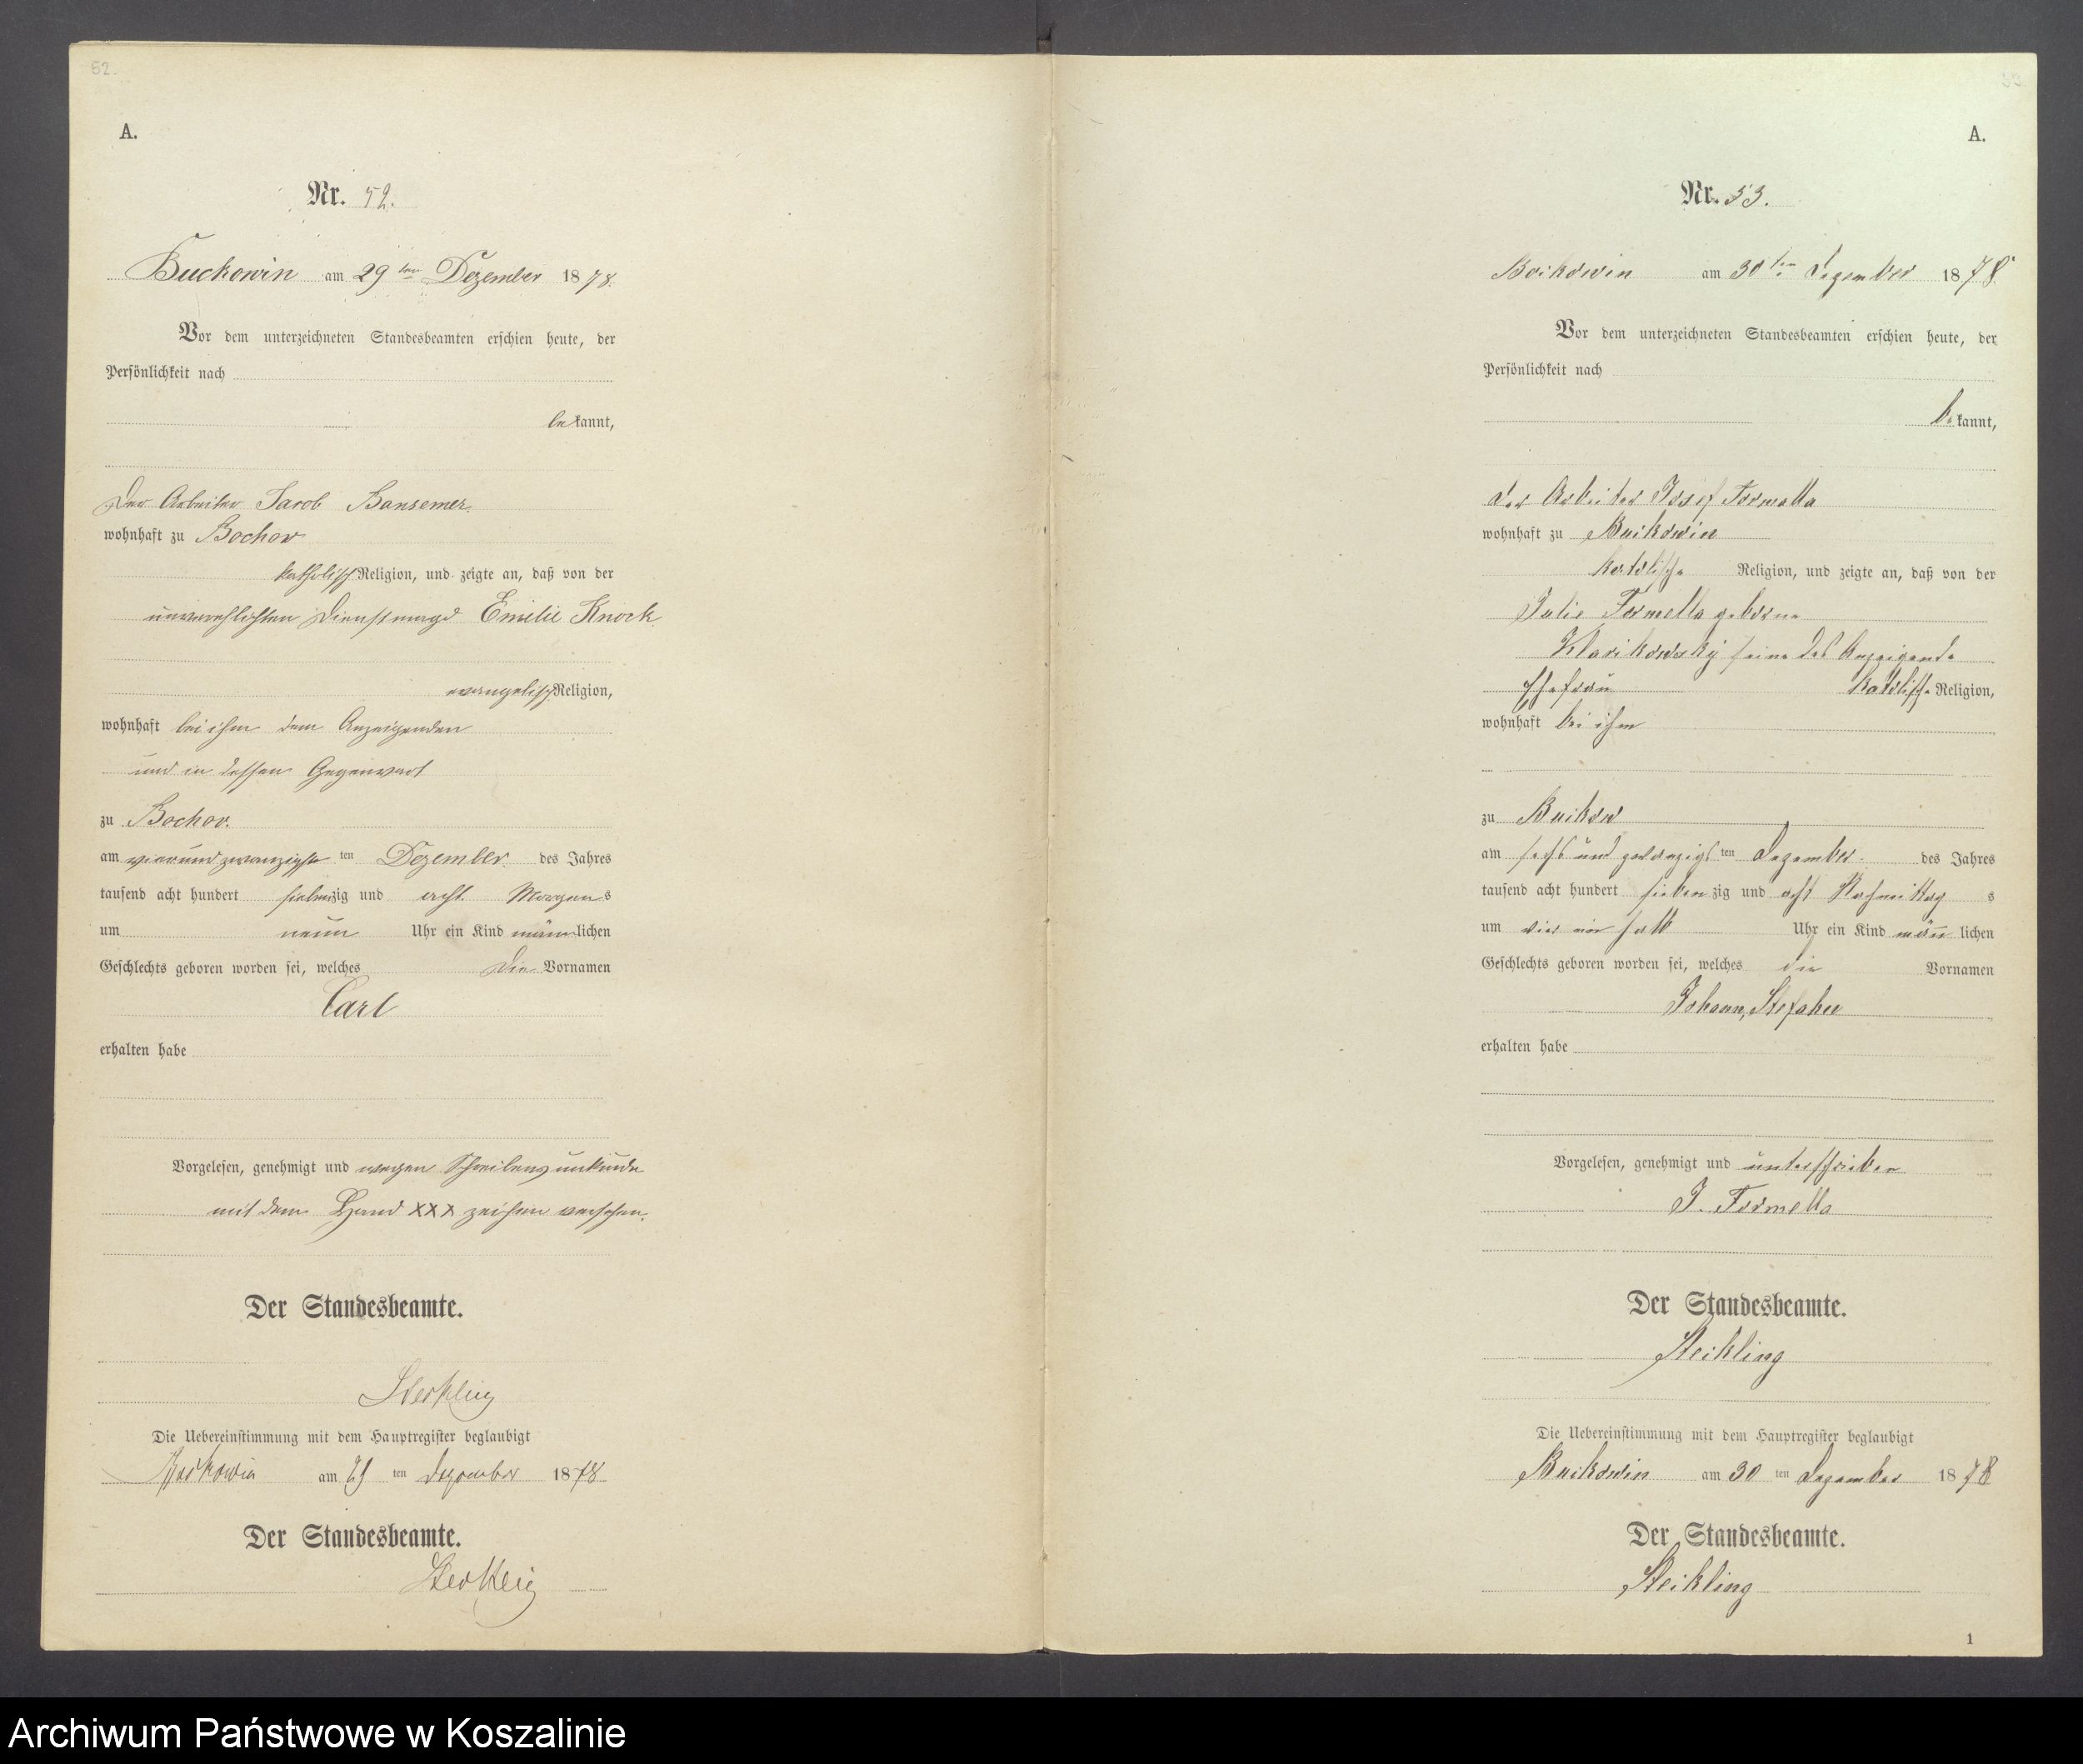 52.
A.
Nr. 52.
Buckowin am 29 ten Dezember 1878.
Vor dem unterzeichneten Standesbeamten erschien heute, der
Persönlichkeit nach
bekannt,
Der Arbeiter Jacob Bansemer
wohnhaft zu Bochow
katholisch Religion, und zeigte an, daß von der
unverehlichten Dienstmagd Emilie Knock
evangelisch Religion,
wohnhaft bei ihm dem Anzeigenden
und in dessen Gegenwart
zu Bochow.
am vierundzwanzigsten ten Dezember des Jahres
tausend acht hundert siebenzig und acht Morgens
um neun Uhr ein Kind männlichen
Geschlechts geboren worden sei, welches die Vornamen
Carl
erhalten habe
Vorgelesen, genehmigt und wegen Schreibensunkunde
mit dem Hand XXX zeichen versehen.
Der Standesbeamte.
Die Uebereinstimmung mit dem Hauptregister beglaubigt
Buckowin am 29 ten Dezember 1878
Der Standesbeamte.
53
A.
Nr. 53.
am 30 ten Dezember 1878
Vor dem unterzeichneten Standesbeamten erschien heute, der
Persönlichkeit nach
bekannt,
der Arbeiter Josef Formella
wohnhaft zu
Religion, und zeigte an, daß von der
Julie Formella geborne
seine des Anzeigende
Ehefrau Religion,
wohnhaft bei ihm
zu
am sechs und zwanzigs ten Dezember des Jahres
tausend acht hundert siebenzig und acht Nachmittags
um vier ein halb Uhr ein Kind männlichen
Geschlechts geboren worden sei, welches die Vornamen
Johann,
erhalten habe
Vorgelesen, genehmigt und unterschrieben
J. Formella
Der Standesbeamte.
Die Uebereinstimmung mit dem Hauptregister beglaubigt
am 30 ten Dezember 1878
Der Standesbeamte.
1
Archiwum Państwowe w Koszalinie